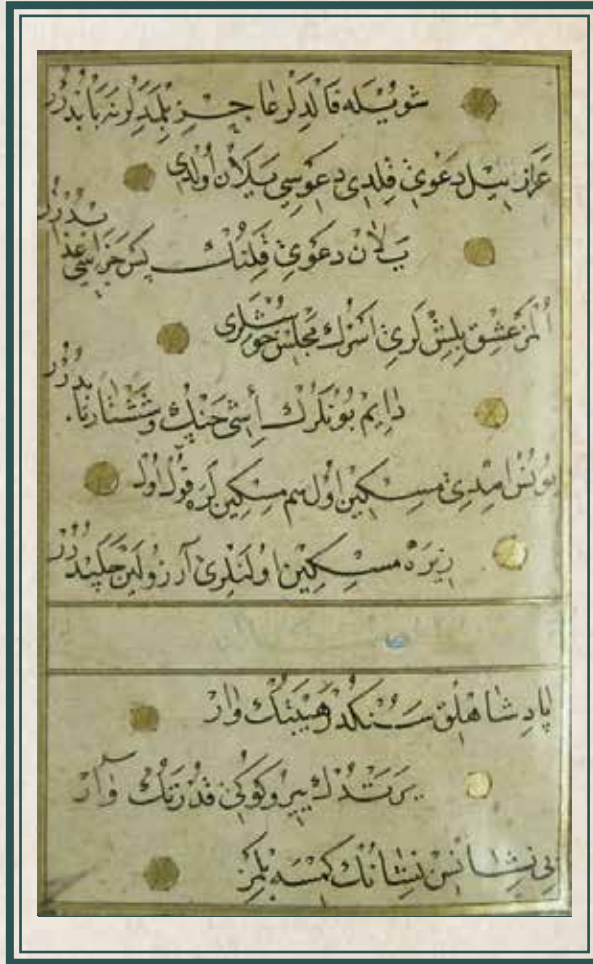 شويله قالدلر عاجز بلمدلر نه بابدرر
عزازيل دعوى قلدى دعوسى يلان اولدى
يلان دعوى قلنك پس جزاسى عذابدرر
المز عشق بلشلرى اسرك مجلس خوشلرى
دايم بونلرك اشى چنك و ششتا ربابدرر
يونس امدى مسكين اول هم مسكينلره قول اول
زيره مسكين اولنلرى آرزولين چلپدرر
پادشاهلق سنكدر هيبتك وار
يرتدك يير و كوكى قدرتك وار
بى نشانسن نشانك كمسه بلمز